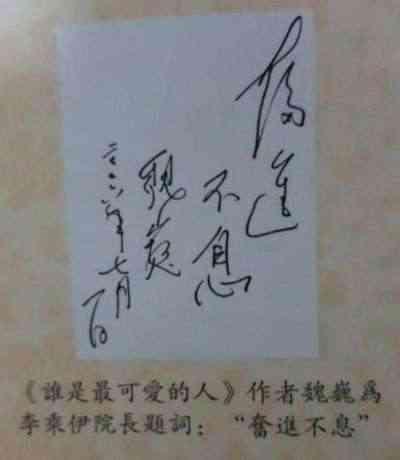 奮進
不息
魏巍
二〇〇六年七月
一日
《誰是最可愛的人》作者魏巍爲
李乘伊院長題詞：“奮進不息”